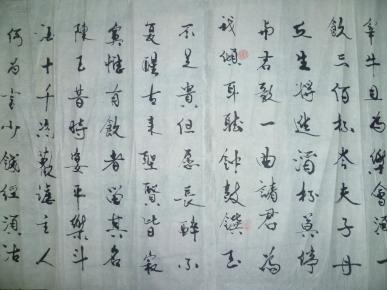 宰牛且為樂會須一
飲三佰杯岑夫子丹
丘生将進酒杯莫停
与君歌一曲請君為
我傾耳聽鈡鼓饌玉
不足貴但愿長醉不
复醒古来聖賢皆寂
寞惟有飲者留其名
陳王昔時宴平樂斗
酒十千恣歡谑主人
何为言少錢徑須沽